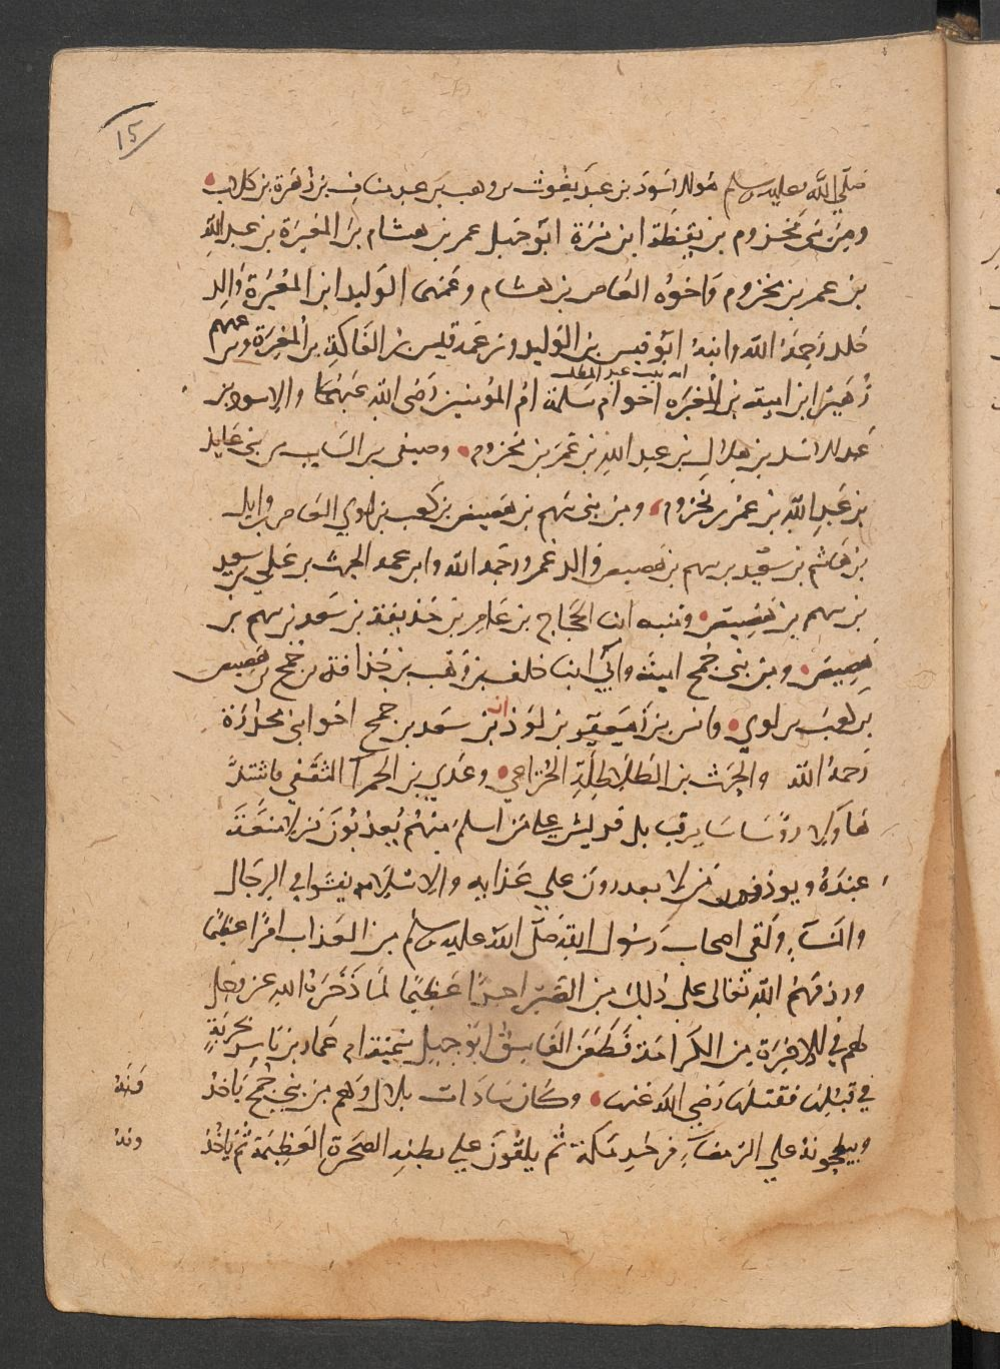 15
صلى الله عليه وسلم هو الاسود بن عبد يغوث بن وهب بن عبد مناف بن زهرة بن كلاب
ومن بني مخزوم بن يقظة ابن مرة ابو جهل عمر بن هشام بن المغيرة بن عبد الله
بن عمر بن مخزوم واخوه العاص بن هشام وعمهما الوليد ابن المغيرة والد
خلد رحمة الله وابنه ابو قيس بن الوليد وبن عمه قيس بن الفاكه بن المغيرة وبن عمهم
زهير ابن امية بن المغيره اخو ام سلمة ام المؤمنين رضى الله عنهما والاسود بن
امه بنت عبد المطلب
عبد الاسد بن هلال بن عبد الله بن عمر بن مخزوم وصيفى بن السايب من بني عايذ
بن عبد الله بن عمر بن مخزوم ومن بني سهم بن هصيص بن كعب بن لوي العاص بن وايل
بن هاشم بن سعيد بن سهم بن هصيص والد عمرو رحمه الله وابن عمه الحرث بن عدي بن سعيد
بن سهم بن هصيص ومنبه ابنا الحجاج بن عامر بن حذيفة بن سعد بن سهم بن
هصيص ومن بني جمح امية وابي ابنا خلف بن وهب بن حذافة بن جمح بن هصيص
بن كعب بن لوي وانس بن معير بن لوذان بن سعد بن جمح اخو ابي محذورة
رحمه الله والحرث بن الطلاطلة الخزاعي وعدي بن الحمرآ الثقفي فاشتد
هاولا روسا ساير قبايل قريش على من اسلم منهم يعذبون من لا منعة
عنده ويوذون من لا يقدرون علي عذابه والاسلام يفشوا في الرجال
والنسآء ولقي اصحاب رسول الله صلى الله عليه وسلم من العذاب امرا عظيما
ورزقهم الله تعالى على ذلك من الصبر اجرا عظيما لما ذخره الله عز وجل
لهم في الاخرة من الكرامة فطعن الفاسق ابو جهل سمية ام عمار بن ياسر بحربة
في قبلها فقتلها رضي الله عنها وكان سادات بلال وهم من بني جمح ياخذ
ويبطحونه علي الرمضآء في حر مكة ثم يلقون علي بطنه الصخرة العظيمة ثم ياخذ